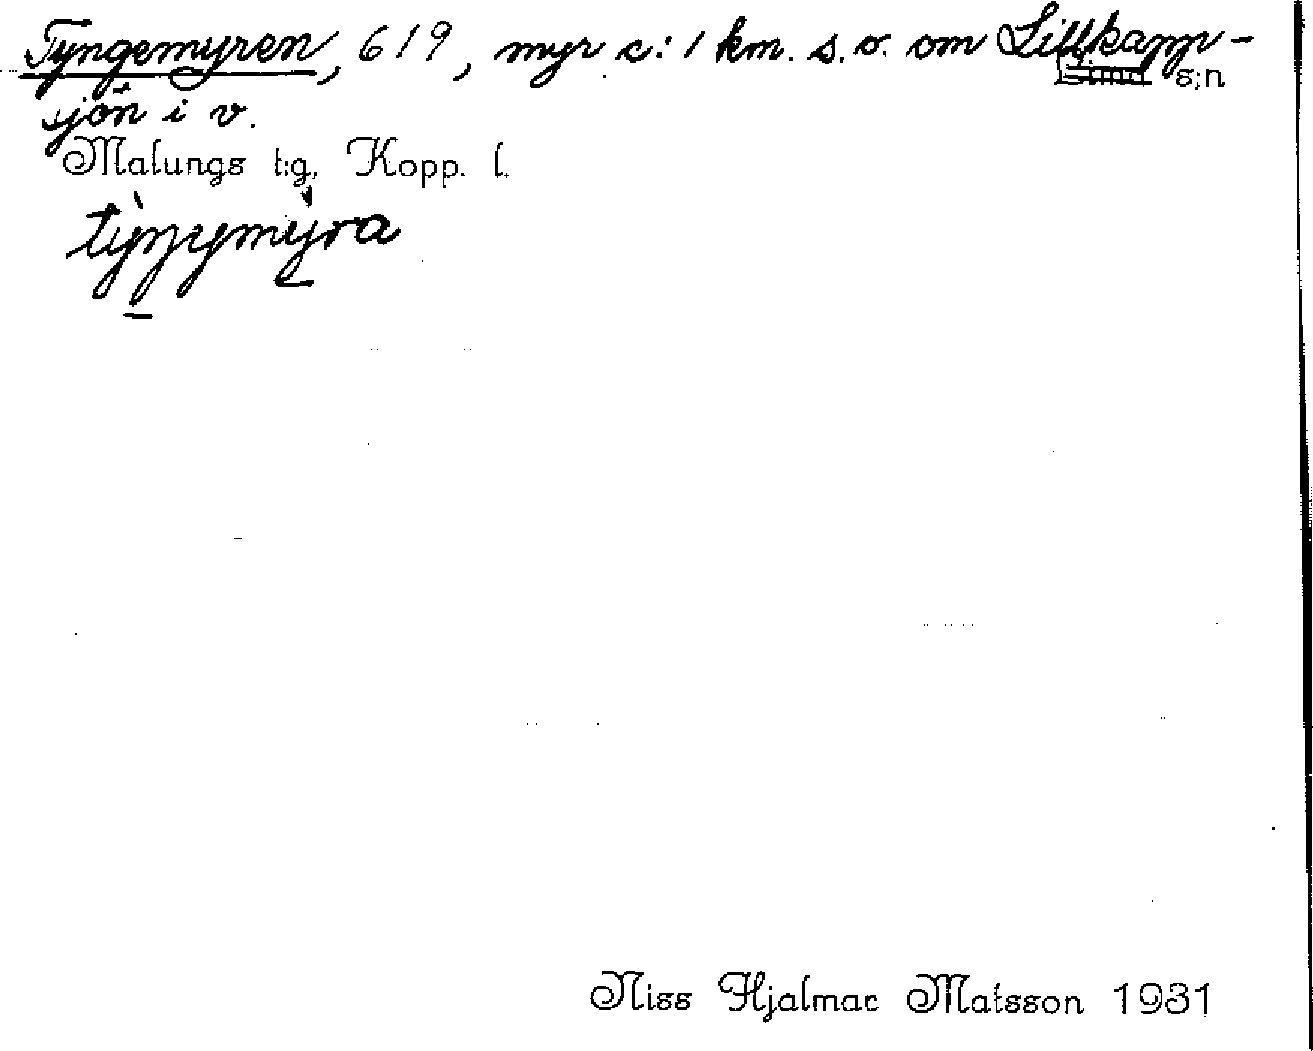 Tyngemyren, 619, myr c:1 km. s.v. om Lillkapp-
Lima s;n
sjön i v.
Malungs t:g, Kopp. l.
týŋymýra
Niss Hjalmar Matsson 1931